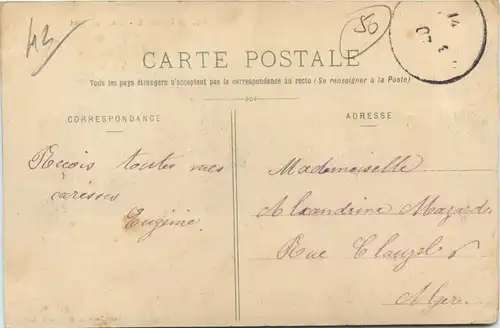 43
50
14
07
CARTE POSTALE
Tous les pays étrangers n'acceptent pas la correspondance au recto (Se renseigner à la Poste)
CORRESPONDANCE
Recois toutes mes
caresses
Eugénie
ADRESSE
Mademoiselle
Alexandrine Mazard
Rue Clauzel
Alger